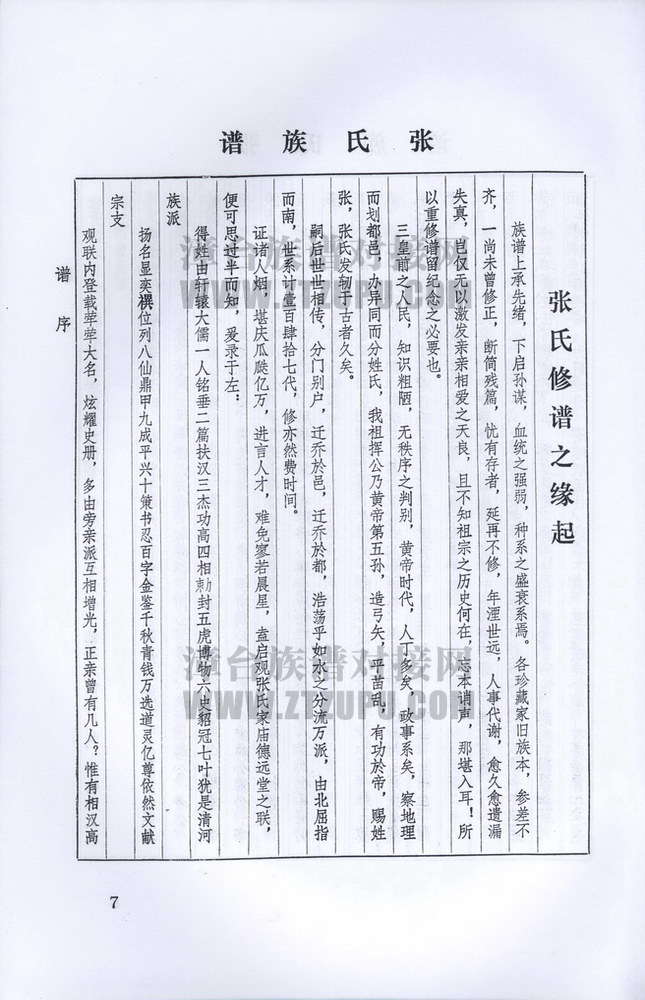 张氏族谱
张氏修谱之缘起
族谱上承先绪，下启孙谋，血统之强弱，种系之盛衰系焉。各珍藏家旧族本，参差不
齐，一尚未曾修正，断简残篇，忧有存者，延再不修，年湮世远，人事代谢，愈久愈遗漏
失真，岂仅无以激发亲亲相爱之天良，且不知祖宗之历史何在，忘本诮声，那堪入耳！所
以重修谱留纪念之必要也。
三皇前之人民，知识粗陋，无秩序之判别，黄帝时代，人丁多矣，政事系矣，察地理
而划都邑，办异同而分姓氏，我祖挥公乃黄帝第五孙，造弓矢，平苗乱，有功於帝，赐姓
张，张氏发轫于古者久矣。
嗣后世世相传，分门别户，迁乔於邑，迁乔於都，浩荡乎如水之分流万派，由北屈指
而南，世系计壹百肆拾七代，修亦然费时间。
证诸人烟，堪庆瓜瓞亿万，进言人才，难免寥若晨星，盍启观张氏家庙德远堂之联，
便可思过半而知，爰录于左：
得姓由轩辕大儒一人铭垂二篇扶汉三杰功高四相勅封五虎博物六史貂冠七叶犹是清河
族派
扬名显奕禩位列八仙鼎甲九成平兴十策书忍百字金鉴千秋青钱万选道灵亿尊依然文献
宗支
观联内登载荦荦大名，炫耀史册，多由旁亲派互相增光，正亲曾有几人？惟有相汉高
谱序
7
漳台族谱对接网
WWW.ZTZUPU.COM
漳台族谱对接网
WWW.ZTZUPU.COM